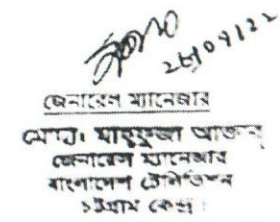 ২৮/০৭/২২
জেনারেল ম্যানেজার
মোছাঃ মাহফুজা আক্তার
জেনারেল ম্যানেজার
বাংলাদেশ টেলিভিশন
চট্টগ্রাম কেন্দ্র।